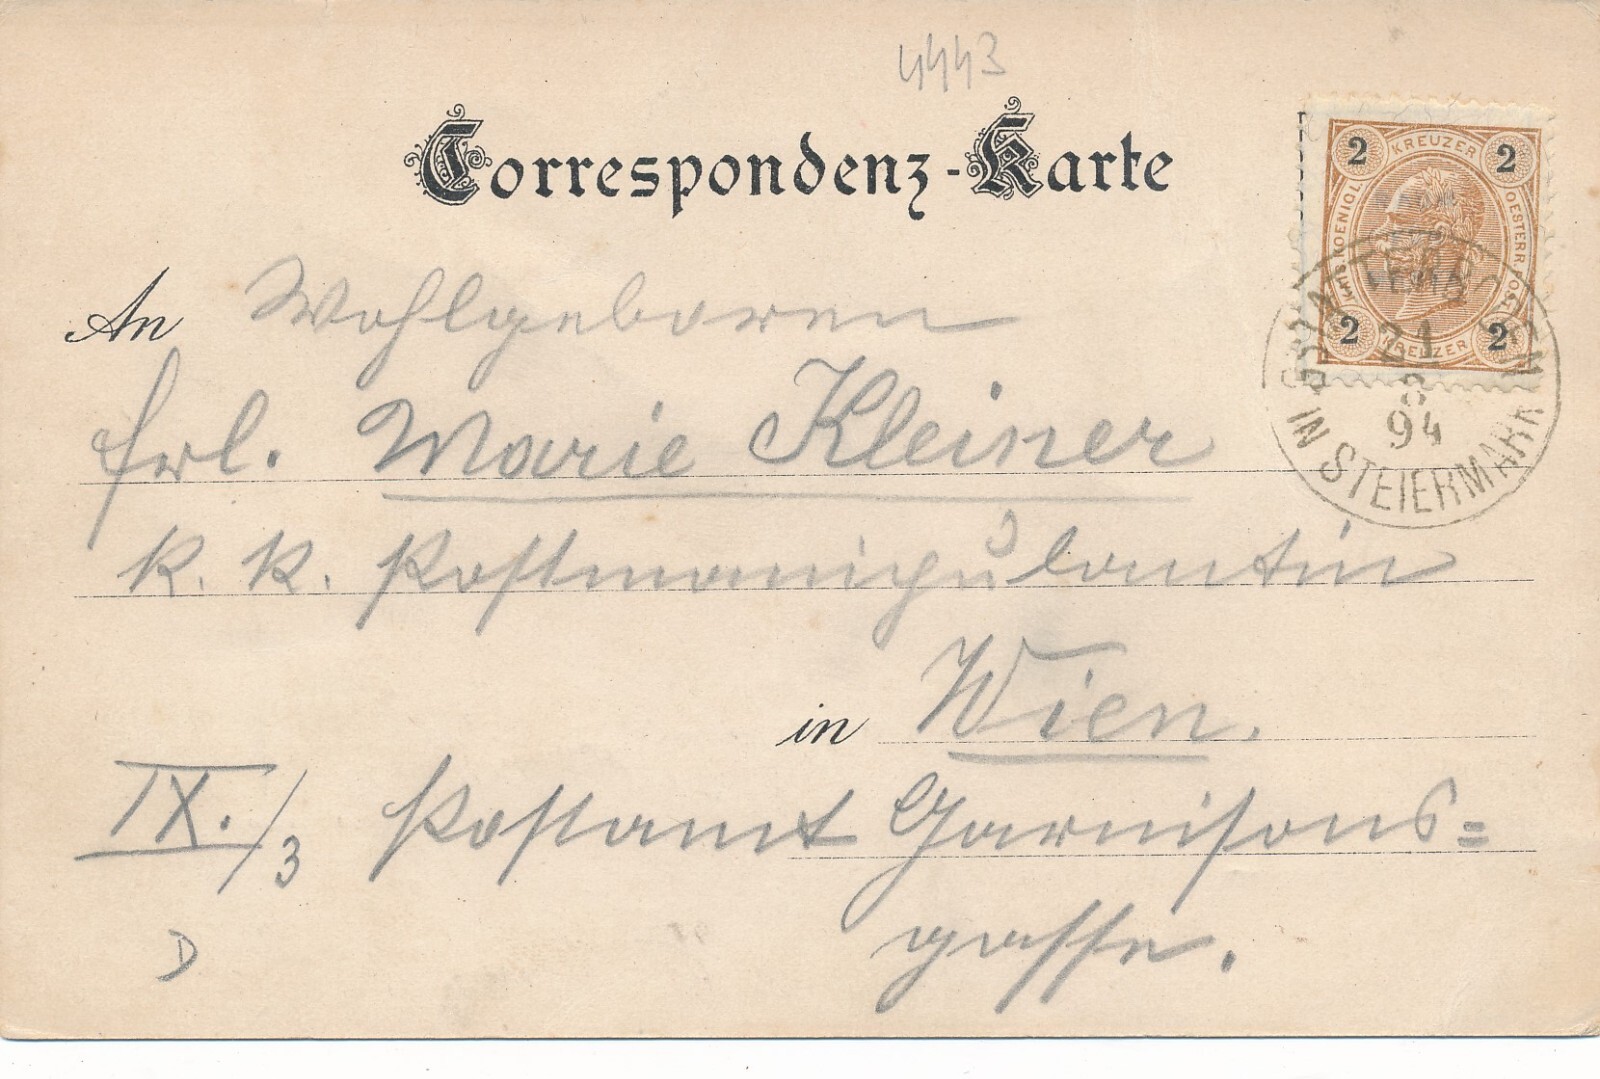 4443
Correspondenz-Karte
2 KREUZER 2
KAIS. KOENIGL. OESTERR. POST
2 KREUZER 2
21
8
94
IN STEIERMARK
An Wohlgeboren
Frl. Marie Kleiner
k. k. Postmanipulantin
in Wien.
IX./3 Postamt Garnisons=
gasse.
D